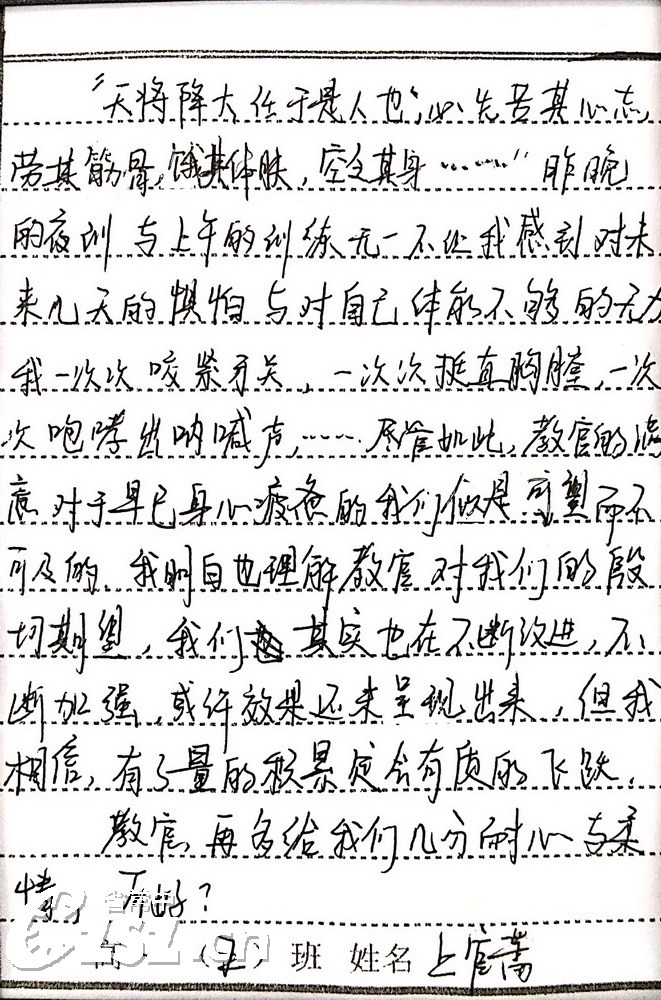 “天将降大任于是人也，必先苦其心志，
劳其筋骨，饿其体肤，空乏其身……”昨晚
的夜训与上午的训练无一不让我感到对未
来几天的惧怕与对自己体能不够的无力
我一次次咬紧牙关，一次次挺直胸膛，一次
次咆哮出呐喊声，……尽管如此，教官的满
意对于早已身心疲惫的我们似是可望而不
可及的。我明白也理解教官对我们的殷
切期望，我们其实也在不断改进，不
断加强，或许效果还未呈现出来，但我
相信，有了量的积累定会有质的飞跃。
教官，再多给我们几分耐心与柔
情，可好？
高一（2）班 姓名 上官